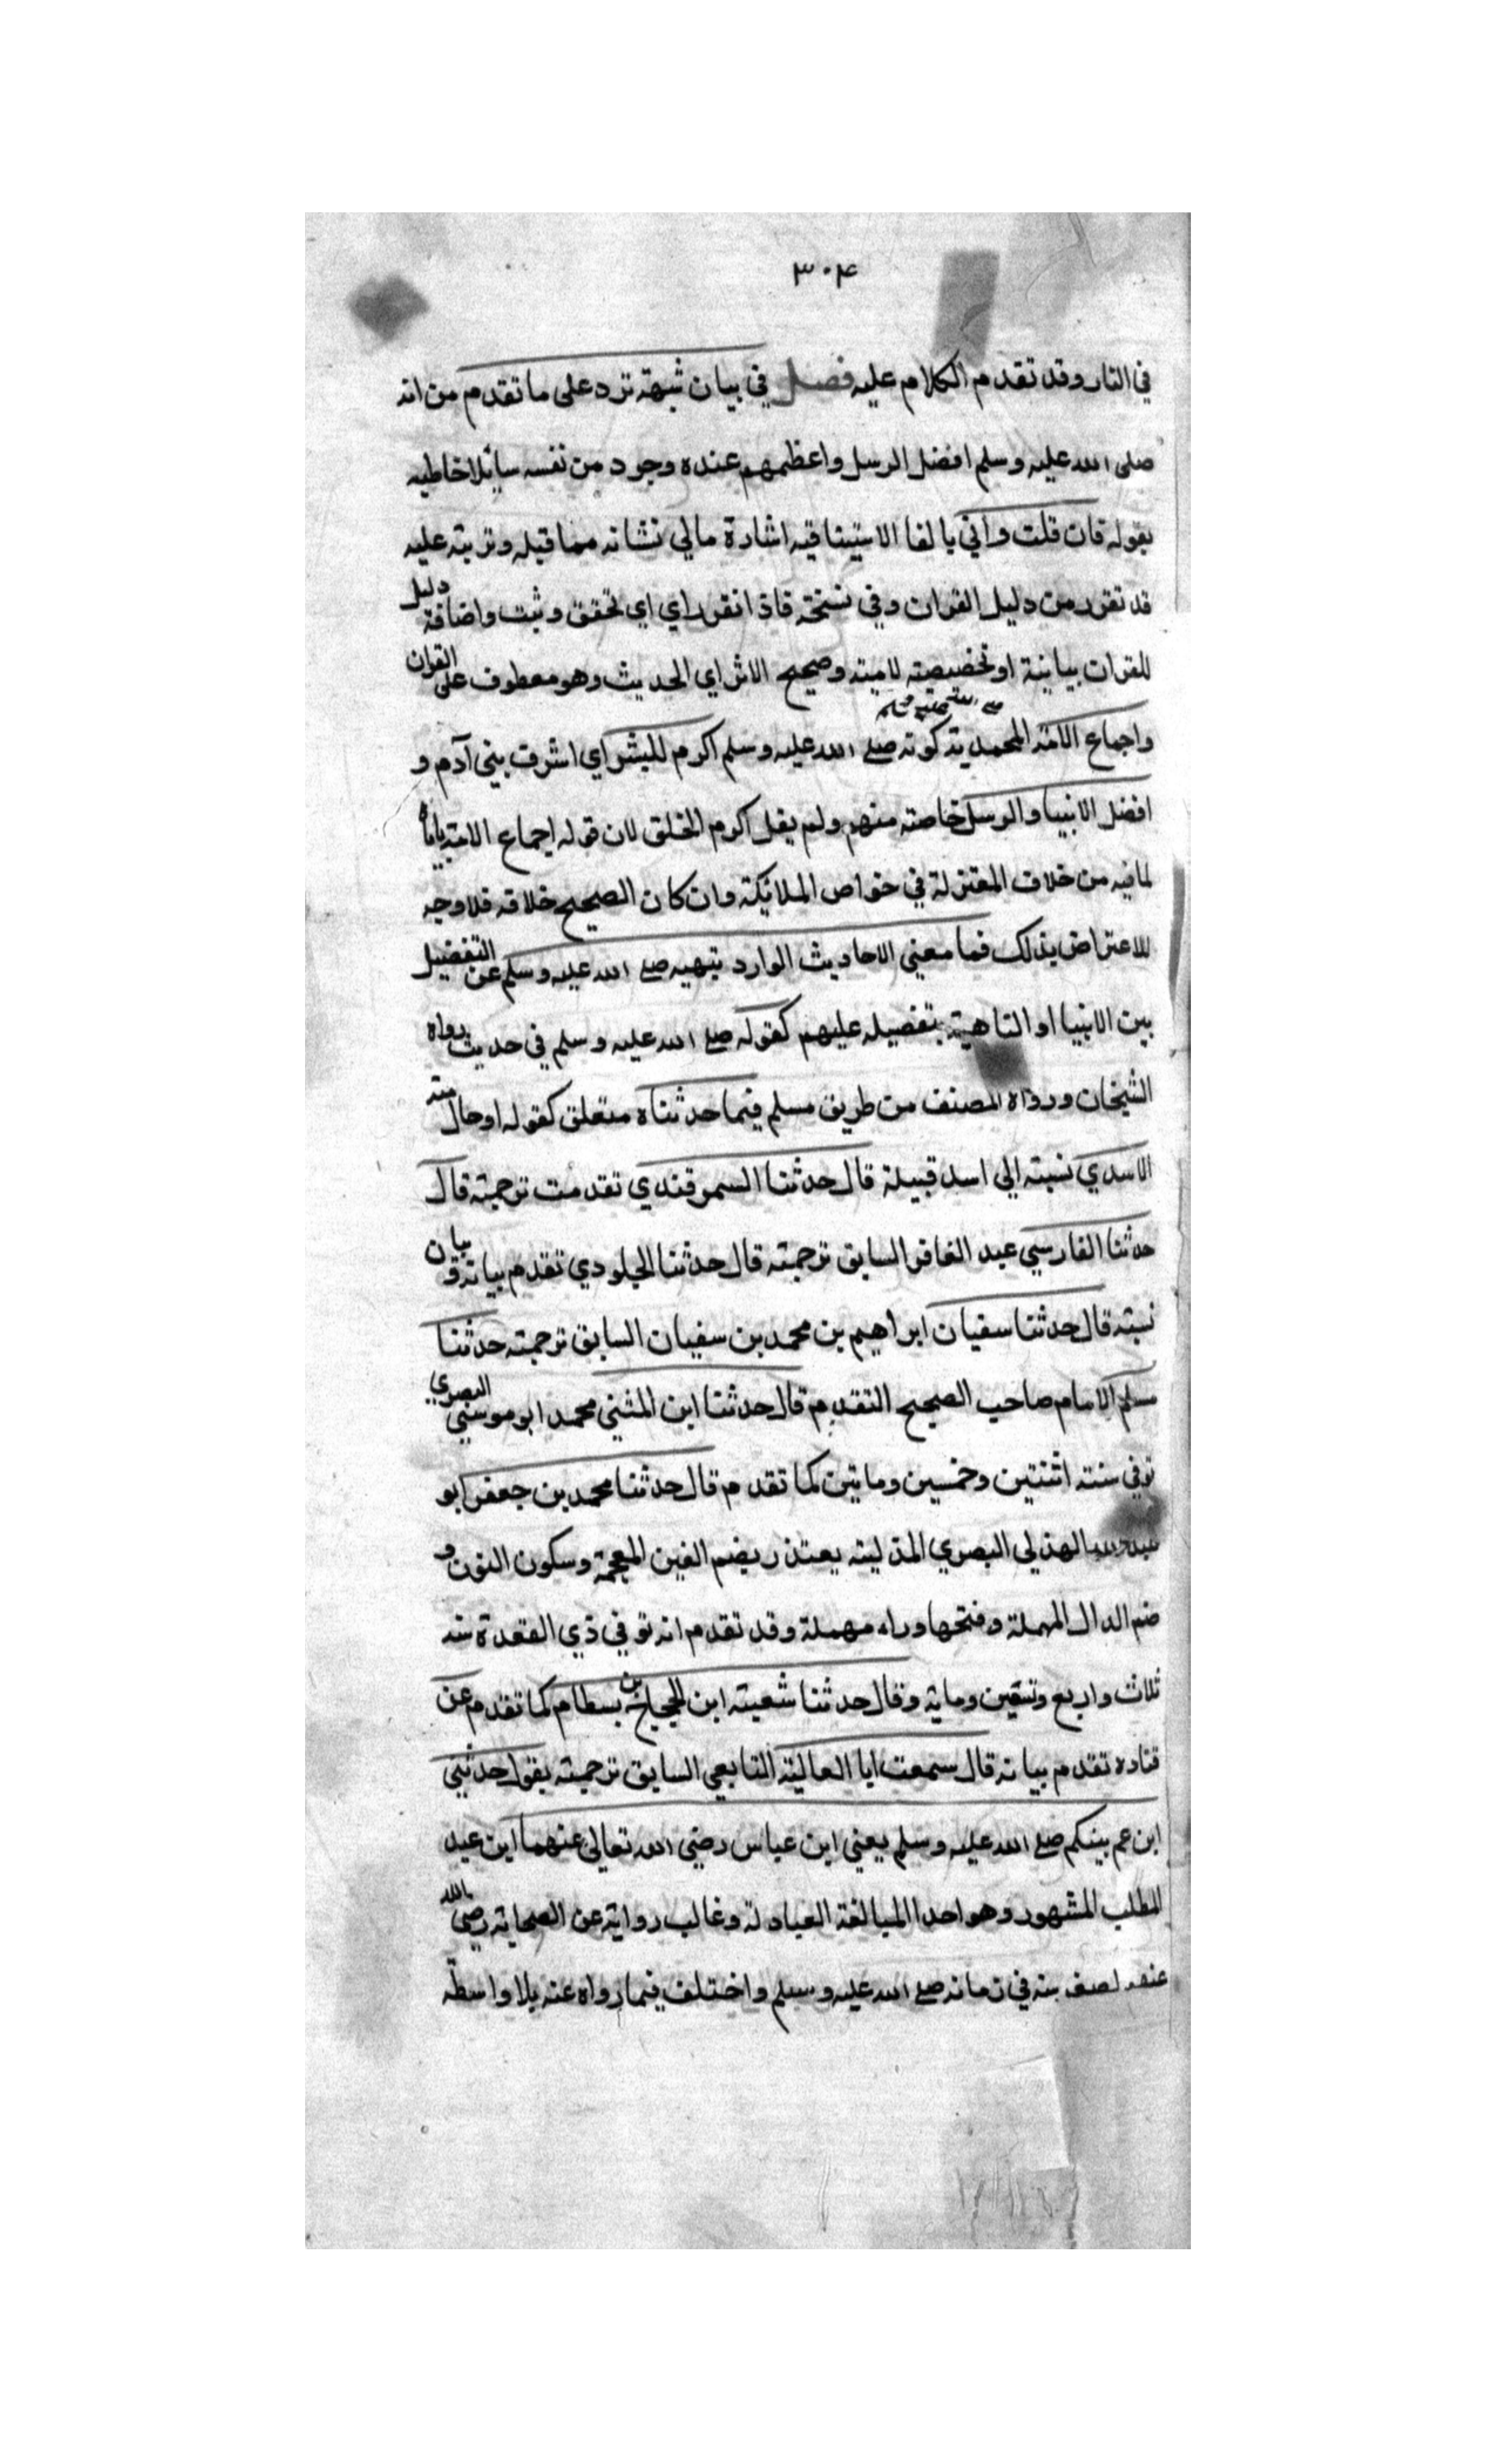 ٣٠٤
في النار وقد تقدم الكلام عليه فصل في بيان شبهة ترد على ما تقدم من انه
صلى الله عليه وسلم افضل الرسل واعظمهم عنده وجرد من نفسه سايلا خاطبه
بقوله فان قلت واتي بالفا الاستينافيه اشارة مالي نشاته مما قبله وترتبه عليه
قد تقرر من دليل القران وفي نسخة فاذا تقرر اي اي تحقق وثبت واضافة دليل
للقران بيانية او تخصيصية لامية وصحيح الاثر اي الحديث وهو معطوف على القران
واجماع الامة المحمدية كونه صلى الله عليه وسلم اكرم للبشر اي اشرف بني آدم و
افضل الانبيا والرسل خاصته منهم ولم يقل اكرم الخلق لان قوله اجماع الامة ياباه
لما فيه من خلاف المعتزلة في خواص الملايكة وان كان الصحيح خلافه فلا وجه
للاعتراض بذلك فما معنى الاحاديث الوارد بنهيه صلى الله عليه وسلم عن التفضيل
بين الانبيا او الناهية بتفضيله عليهم كقوله صلى الله عليه وسلم في حديث رواه
الشيخان ورواه المصنف من طريق مسلم فيما حدثناه متعلق كقوله او حال منه
الاسدي نسبته الى اسد قبيلة قال حدثنا السمرقندي تقدمت ترجمته قال
حدثنا الفارسي عبد الغافر السابق ترجمته قال حدثنا الجلودي تقدم بيانه وبيان
نسبته قال حدثنا سفيان ابراهيم بن محمد بن سفيان السابق ترجمته حدثنا
مسلم الامام صاحب الصحيح المتقدم قال حدثنا ابن المثنى محمد ابو موسى البصري
توفي سنته اثنتين وخمسين وماتين كما تقدم قال حدثنا محمد بن جعفر ابو
عبد الله الهذلي البصري بضم الغين المعجمة وسكون النون و
ضم الدال المهملة وفتحها وراء مهملة وقد تقدم انه توفي في ذي القعدة سنه
ثلاث واربع وتسعين وماية وقال حدثنا شعبته ابن الحجاج بن بسطام كما تقدم عن
قتاده تقدم بيانه قال سمعت ابا العالية التابعي السابق ترجمته يقول حدثني
ابن عم نبيكم صلى الله عليه وسلم يعني ابن عباس رضي الله تعالى عنهما ابن عبد
المطلب المشهور وهو احد العبادلة وغالب رواية عن الصحابة رضي الله
عنهم لصغر سنه في زمانه صلى الله عليه وسلم واختلف فيما رواه عنه بلا واسطة